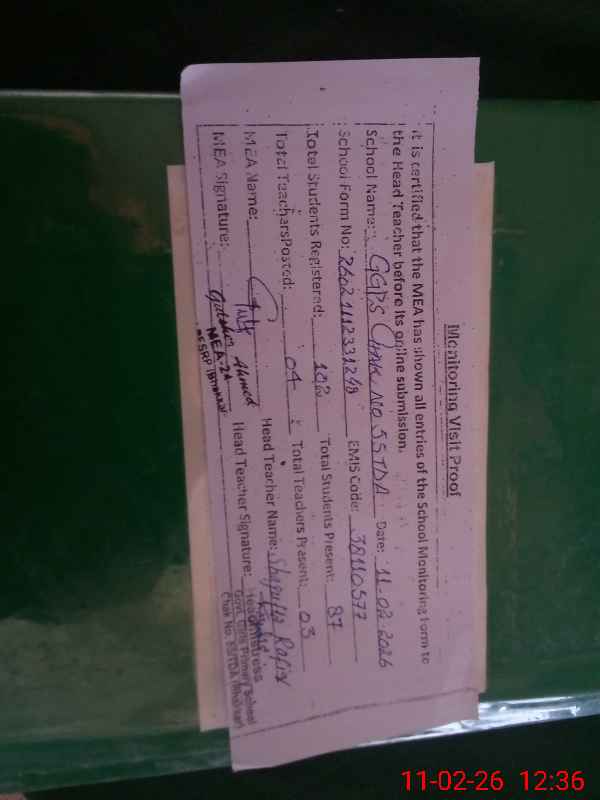 Monitoring Visit Proof
It is certified that the MEA has shown all entries of the School Monitoring Form to
the Head Teacher before its online submission.
School Name: GGPS Chak No 55TDA Date: 11-02-2026
School Form No: 26021112331248 EMIS Code: 38110577
Total Students Registered: 102 Total Students Present: 87
Total Teachers Posted: 04 Total Teachers Present: 03
MEA Name: Ahmed Head Teacher Name: Shagufta Rafiq
MEA Signature: Head Teacher Signature:
MEA-24
Headmistress
Govt. Girls Primary School
Chak No. 55/TDA (Bhakkar)
11-02-26 12:36